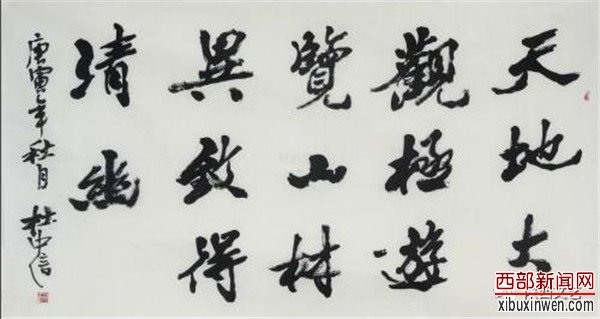 天地大
觀極遊
覽山林
異致得
清幽
庚寅年秋月 杜中信
西部新闻网
xibuxinwen.com